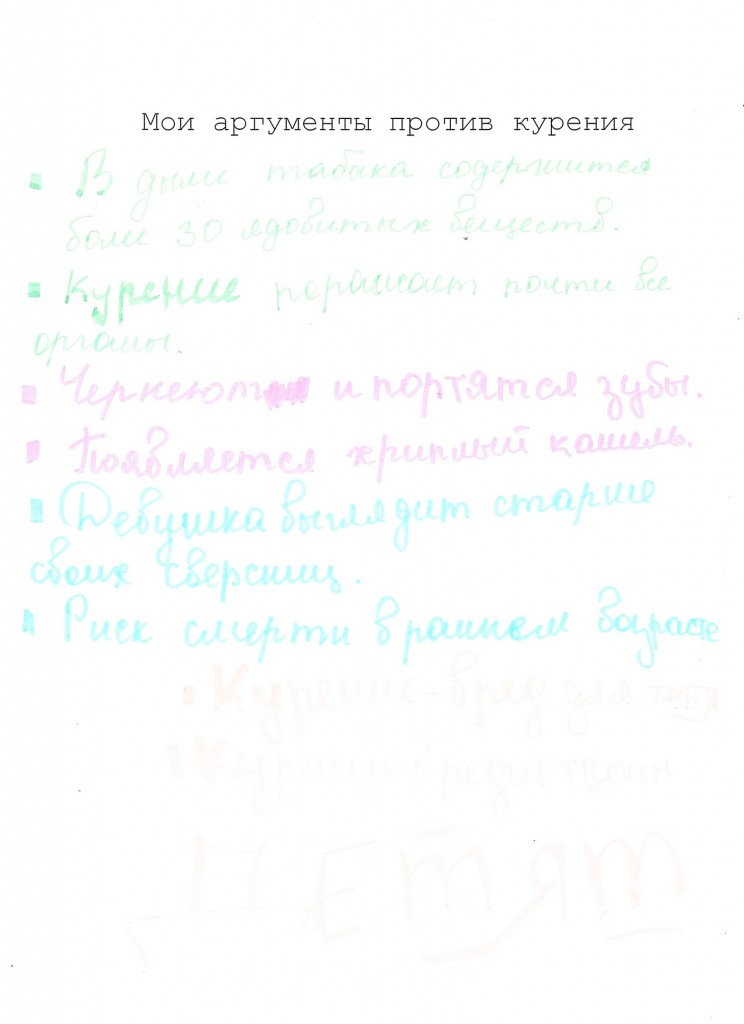 Мои аргументы против курения
▪ В дыме табака содержится
боле 30 ядовитых веществ.
▪ Курение поражает почти все
органы.
▪ Чернеют и портятся зубы.
▪ Появляется хриплый кашель.
▪ Девушка выглядит старше
своих сверсниц.
▪ Риск смерти в раннем возрасте
▪ Курение-вред для тебя
▪ Курение вредит твоим